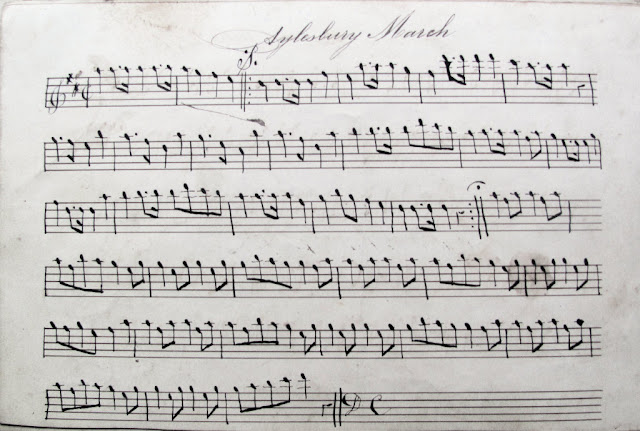 Aylesbury March
S.
D C